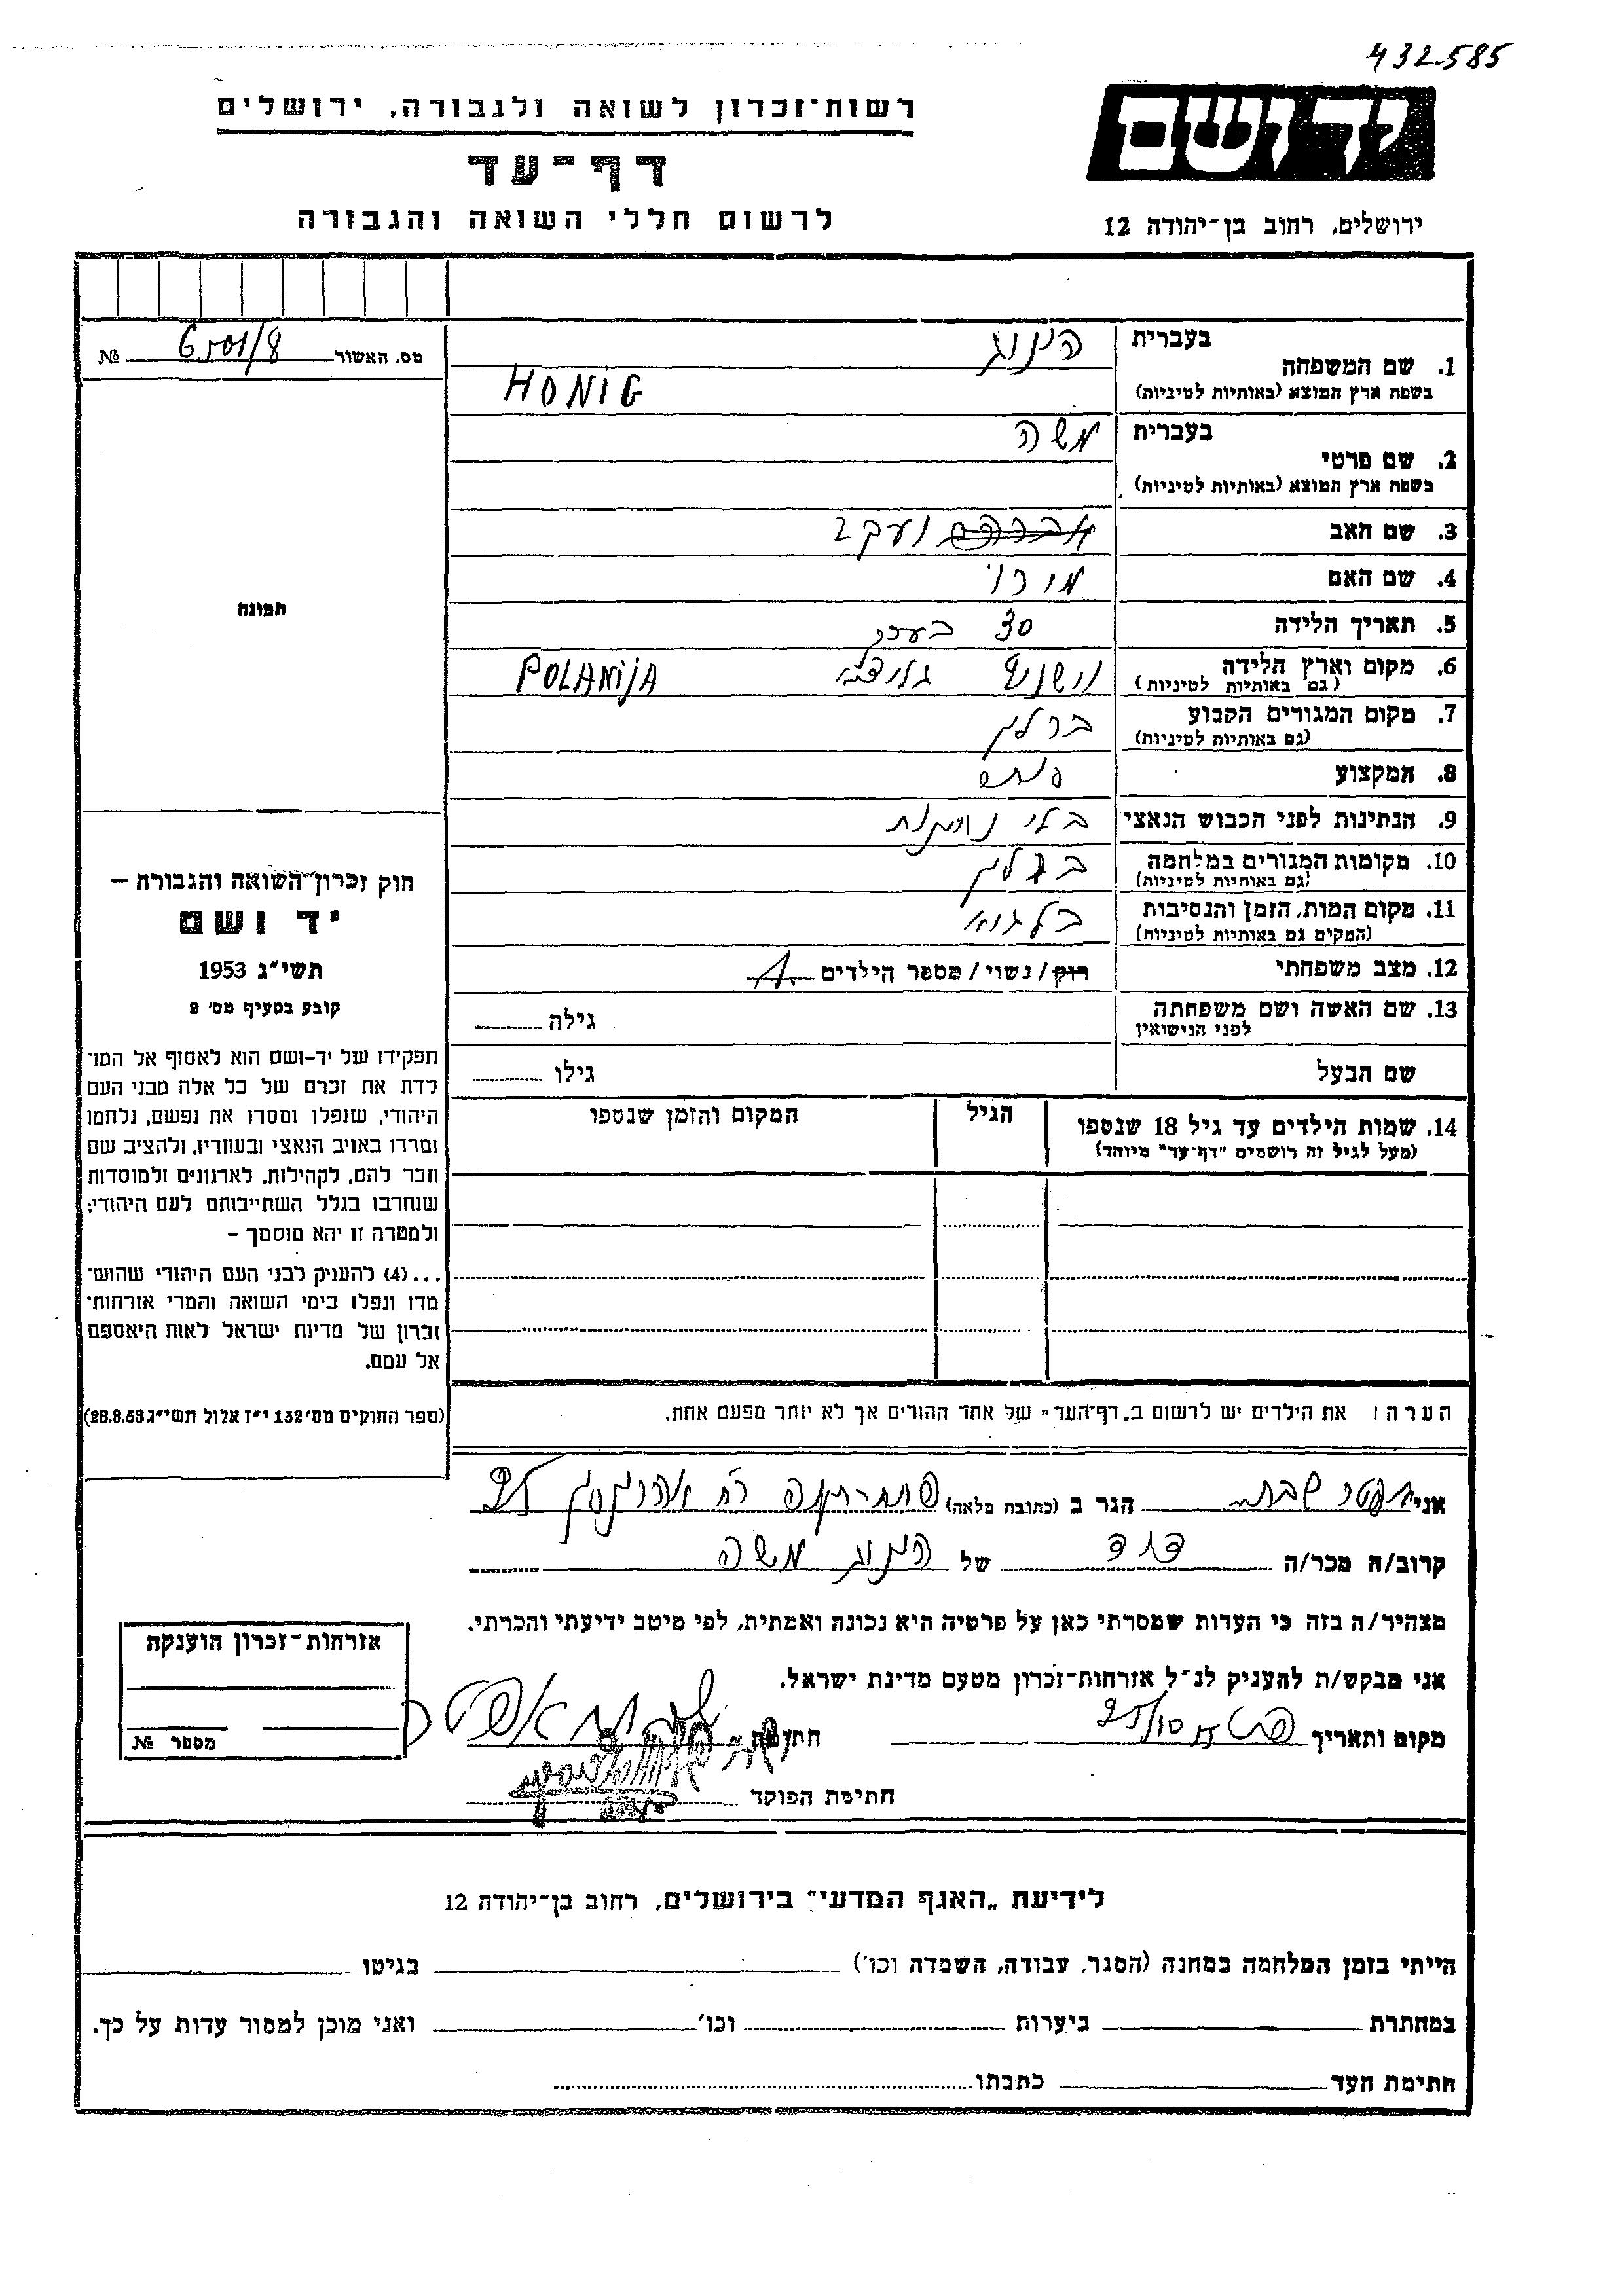 432.585
רשות־זכרון לשואה ולגבורה, ירושלים
דף־עד
לרשום חללי השואה והגבורה
יד ושם
ירושלים, רחוב בן־יהודה 12
מס. האשור 6501/8 №
תמונה
חוק זכרון השואה והגבורה —
יד ושם
תשי״ג 1953
קובע בסעיף מס׳ 2
תפקידו של יד-ושם הוא לאסוף אל המו־
לדת את זכרם של כל אלה מבני העם
היהודי, שנפלו ומסרו את נפשם, נלחמו
ומרדו באויב הנאצי ובעוזריו, ולהציב שם
וזכר להם, לקהילות, לארגונים ולמוסדות
שנחרבו בגלל השתייכותם לעם היהודי;
ולמטרה זו יהא מוסמך —
...(4) להעניק לבני העם היהודי שהוש־
מדו ונפלו בימי השואה והמרי אזרחות־
זכרון של מדינת ישראל לאות היאספם
אל עמם.
(ספר החוקים מס׳ 132 י״ז אלול תשי״ג 28.8.53)
בעברית הניג
1. שם המשפחה
בשפת ארץ המוצא (באותיות לטיניות) HONIG
בעברית משה
2. שם פרטי
בשפת ארץ המוצא (באותיות לטיניות)
3. שם האב אברהם יעקב
4. שם האם
5. תאריך הלידה 30 בערך
6. מקום וארץ הלידה
(גם באותיות לטיניות) POLANIJA
7. מקום המגורים הקבוע ברלין
(גם באותיות לטיניות)
8. המקצוע סוחר
9. הנתינות לפני הכבוש הנאצי בלי נתינות
10. מקומות המגורים במלחמה
(גם באותיות לטיניות)
11. מקום המות, הזמן והנסיבות
(המקום גם באותיות לטיניות)
12. מצב משפחתי רוק/נשוי/מספר הילדים 1
13. שם האשה ושם משפחתה גילה
לפני הנישואין
שם הבעל גילו
14. שמות הילדים עד גיל 18 שנספו הגיל המקום והזמן שנספו
(מעל לגיל זה רושמים "דף־עד" מיוחד)
הערה: את הילדים יש לרשום ב„דף־העד" של אחד ההורים אך לא יותר מפעם אחת.
אני הגר ב (כתובת מלאה) 25
קרוב/ה מכר/ה דוד של הניג משה
מצהיר/ה בזה כי העדות שמסרתי כאן על פרטיה היא נכונה ואמתית, לפי מיטב ידיעתי והכרתי.
אני מבקש/ת להעניק לנ״ל אזרחות־זכרון מטעם מדינת ישראל.
מקום ותאריך 25/10 חתימה
חתימת הפוקד
אזרחות־זכרון הוענקה
מספר №
לידיעת „האגף המדעי" בירושלים, רחוב בן־יהודה 12
הייתי בזמן המלחמה במחנה (הסגר, עבודה, השמדה וכו׳) בגיטו
במחתרת ביערות וכו׳ ואני מוכן למסור עדות על כך.
חתימת העד כתבתו